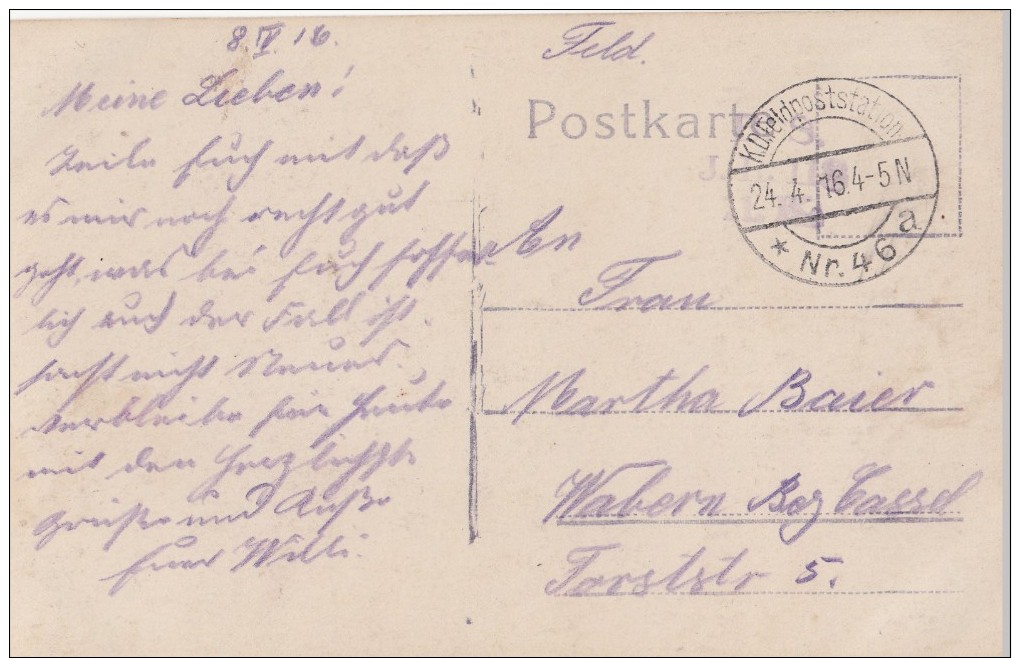 8.IV.16.
Meine Lieben!
Teile Euch mit daß
es mir noch recht gut
geht, was bei Euch hoffent
lich auch der Fall ist.
sonst nicht Neues.
Verbleibe für Heute
mit den Herzlichste
Grüße und Küße
Euer Willi.
Feld.
Postkarte
K.D. Feldpoststation
24. 4. 16. 4-5 N
* Nr. 46 a.
An
Frau
Martha Baier
Wabern Bez Cassel
Forststr 5.